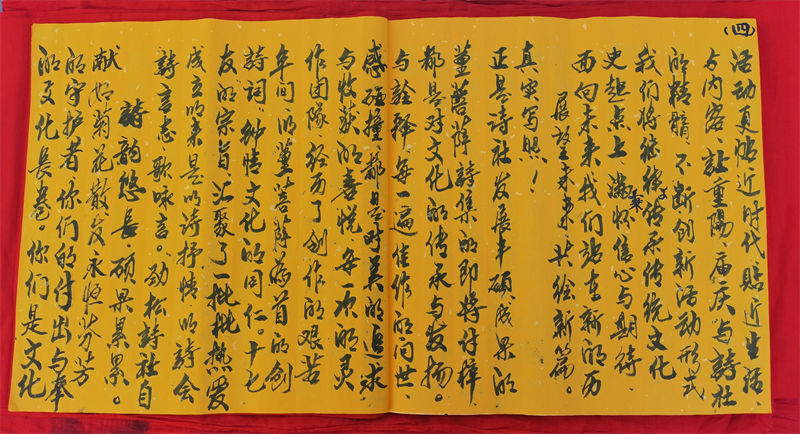 (四)
活动更贴近时代、贴近生活、
与内容、让重阳、庙庆与诗社
的精髓、不断创新活动形式
我们将继续秉承传统文化
史起点上满怀信心与期待、
面向未来我们站在新的历
展望未来共绘新篇。
真实写照！
正是诗社发展丰硕成果的
董菩萨诗集的即将付梓、
都是对文化的传承与发扬。
与诠释每一遍佳作的问世、
感碰撞都是对美的追求
与收获的喜悦、每一次的灵
作团队经历了创作的艰苦
年间以董菩萨为首的创
詩词、钟情文化的同仁。十七
友的宗旨、汇聚了一批批热爱
成立以来是以诗抒情以詩会
詩言志歌咏言。劲松詩社自
詩韵悠长、硕果累累。
献如菊花散发永恒芬芳
的守护者你们的付出与奉
的文化长卷。你们是文化